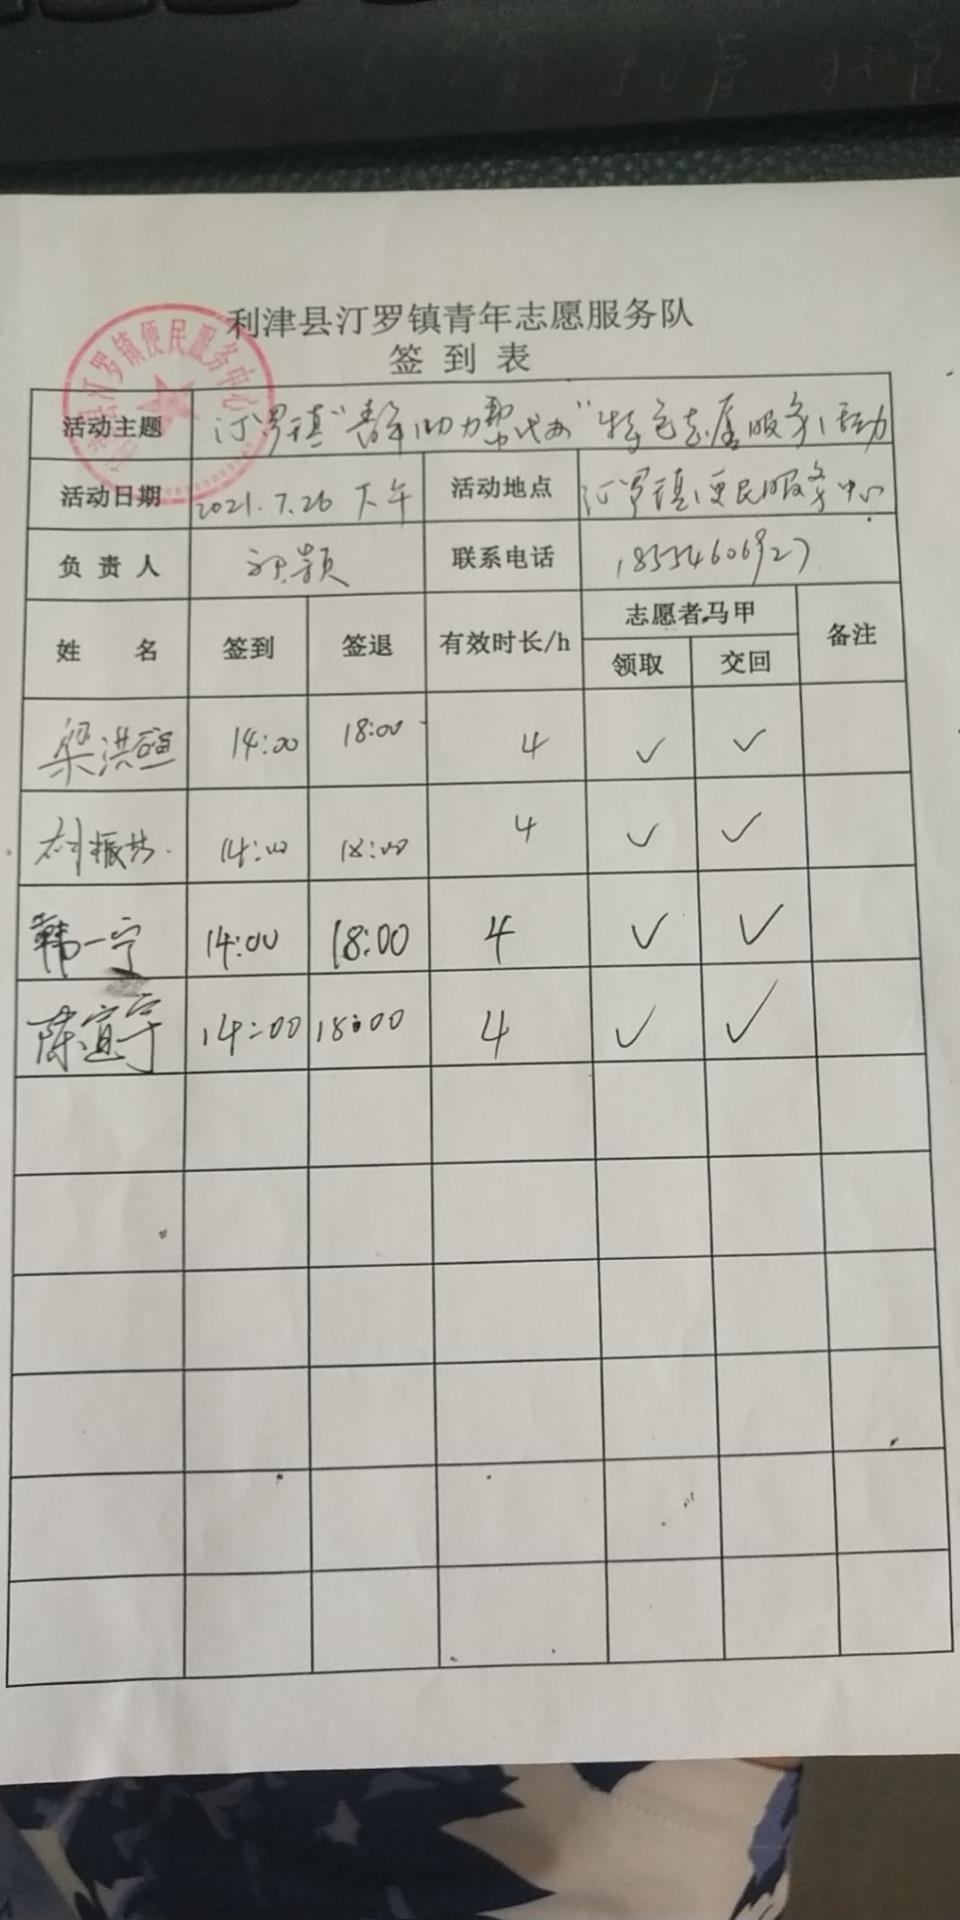 利津县汀罗镇青年志愿服务队
签到表
汀罗镇便民服务中心
活动主题 汀罗镇“青年助力帮代办”特色志愿服务活动
活动日期 2021.7.26 下午 活动地点 汀罗镇便民服务中心
负责人 颖 联系电话 18554606927
姓名 签到 签退 有效时长/h 志愿者马甲 备注
领取 交回
梁洪 14:00 18:00 4 ✓ ✓
振 14:00 18:00 4 ✓ ✓
韩一宁 14:00 18:00 4 ✓ ✓
陈宜宇 14:00 18:00 4 ✓ ✓